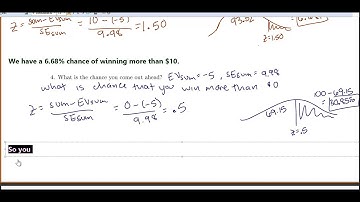 z = sum - EVsum / SEsum = 10 - (-5) / 9.98 = 1.50
93.32
z=1.50
We have a 6.68% chance of winning more than $10.
4. What is the chance you come out ahead? EVsum = -5, SEsum = 9.98
what is chance that you win more than $0
z = sum - EVsum / SEsum = 0 - (-5) / 9.98 = .5
69.15
100 - 69.15
30.85%
z=.5
So you